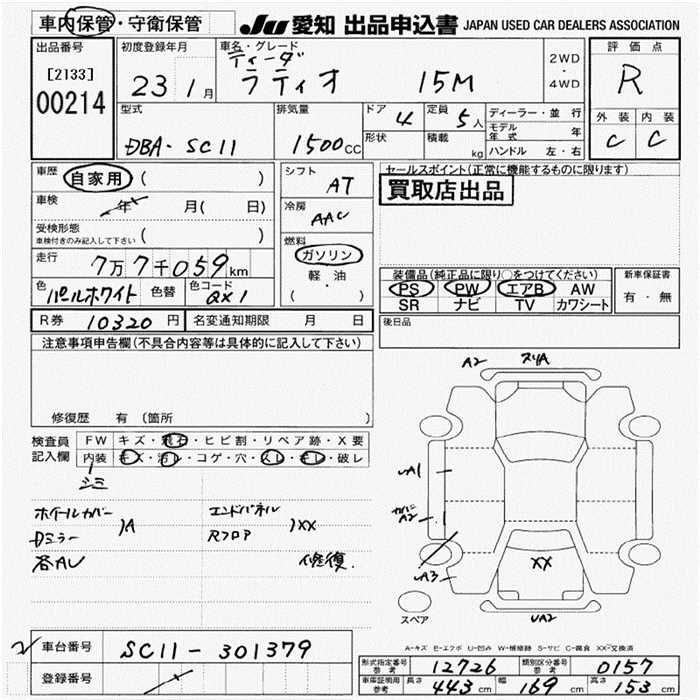 車内保管・守衛保管
JU 愛知 出品申込書 JAPAN USED CAR DEALERS ASSOCIATION
出品番号
[2133]
00214
初度登録年月
23 1月
車名・グレード
ティーダ
ラティオ 15M
2WD
・
4WD
評価点
R
外装 内装
C C
型式
DBA-SC11
排気量
1500cc
ドア
4
定員
5人
形状
積載
kg
ディーラー・並行
モデル年式 年
ハンドル 左・右
車歴
自家用 ( )
車検
年 月( 日)
受検形態
車検付きのみ記入して下さい ( )
走行
7万7千059km
色
パールホワイト
色替
色コード
QX1
シフト
AT
冷房
AAC
燃料
ガソリン
軽・油
( )
セールスポイント(正常に機能するものに限ります)
買取店出品
装備品(純正品に限り○をつけてください)
PS PW エアB AW
SR ナビ TV カワシート
新車保証書
有・無
R券 10320円
名変通知期限 月 日
後日品
注意事項申告欄(不具合内容等は具体的に記入して下さい)
修復歴 有 (箇所 )
検査員
記入欄
FW キズ・飛石・ヒビ割・リペア跡・X要
内装 キズ・汚レ・コゲ・穴・スレ・キレ・破レ
シミ
ホイールカバー
Dミラー
)A
各AU
エンドパネル
Rフロア
)XX
修復.
A2
スリA
A1
カバー
A2
A3
XX
UA2
スペア
A-キズ E-エクボ U-凹み W-補修跡 S-サビ C-腐食 XX-交換済
2
車台番号 SC11-301379
登録番号
形式指定番号
参考
12726
類別区分番号
参考
0157
車庫証明用
参考
長さ 443cm 幅 169cm 高さ 153cm